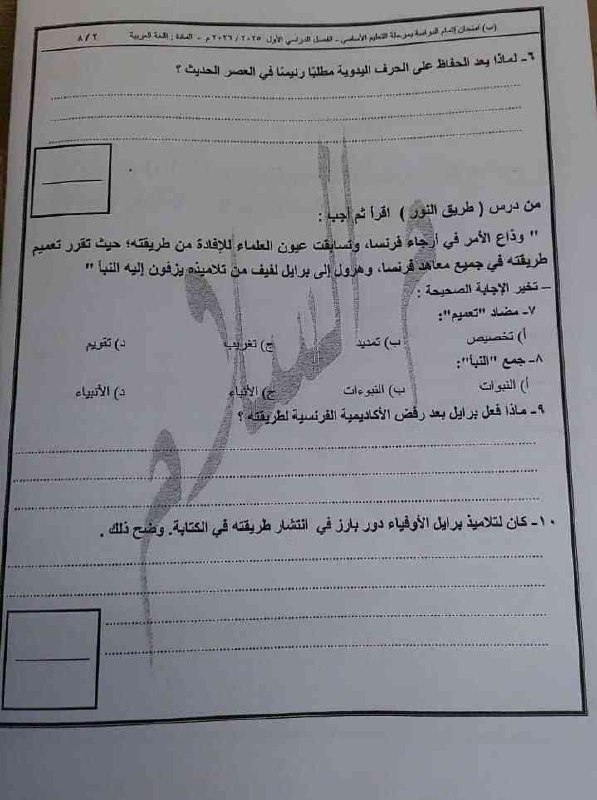 (ب) امتحان إتمام الدراسة بمرحلة التعليم الأساسي - الفصل الدراسي الأول ٢٠٢٥ / ٢٠٢٦ م - المادة : اللغة العربية ٨ / ٢
٦- لماذا يعد الحفاظ على الحرف اليدوية مطلبًا رئيسًا في العصر الحديث ؟
من درس ( طريق النور ) اقرأ ثم أجب :
" وذاع الأمر في أرجاء فرنسا، وتسابقت عيون العلماء للإفادة من طريقته؛ حيث تقرر تعميم
طريقته في جميع معاهد فرنسا، وهرول إلى برايل لفيف من تلاميذه يزفون إليه النبأ "
– تخير الإجابة الصحيحة :
٧- مضاد "تعميم":
أ) تخصيص ب) تمديد ج) تغريب د) تقويم
٨- جمع "النبأ":
أ) النبوات ب) النبوءات ج) الأنباء د) الأنبياء
٩- ماذا فعل برايل بعد رفض الأكاديمية الفرنسية لطريقته ؟
١٠- كان لتلاميذ برايل الأوفياء دور بارز في انتشار طريقته في الكتابة. وضح ذلك .
السلام